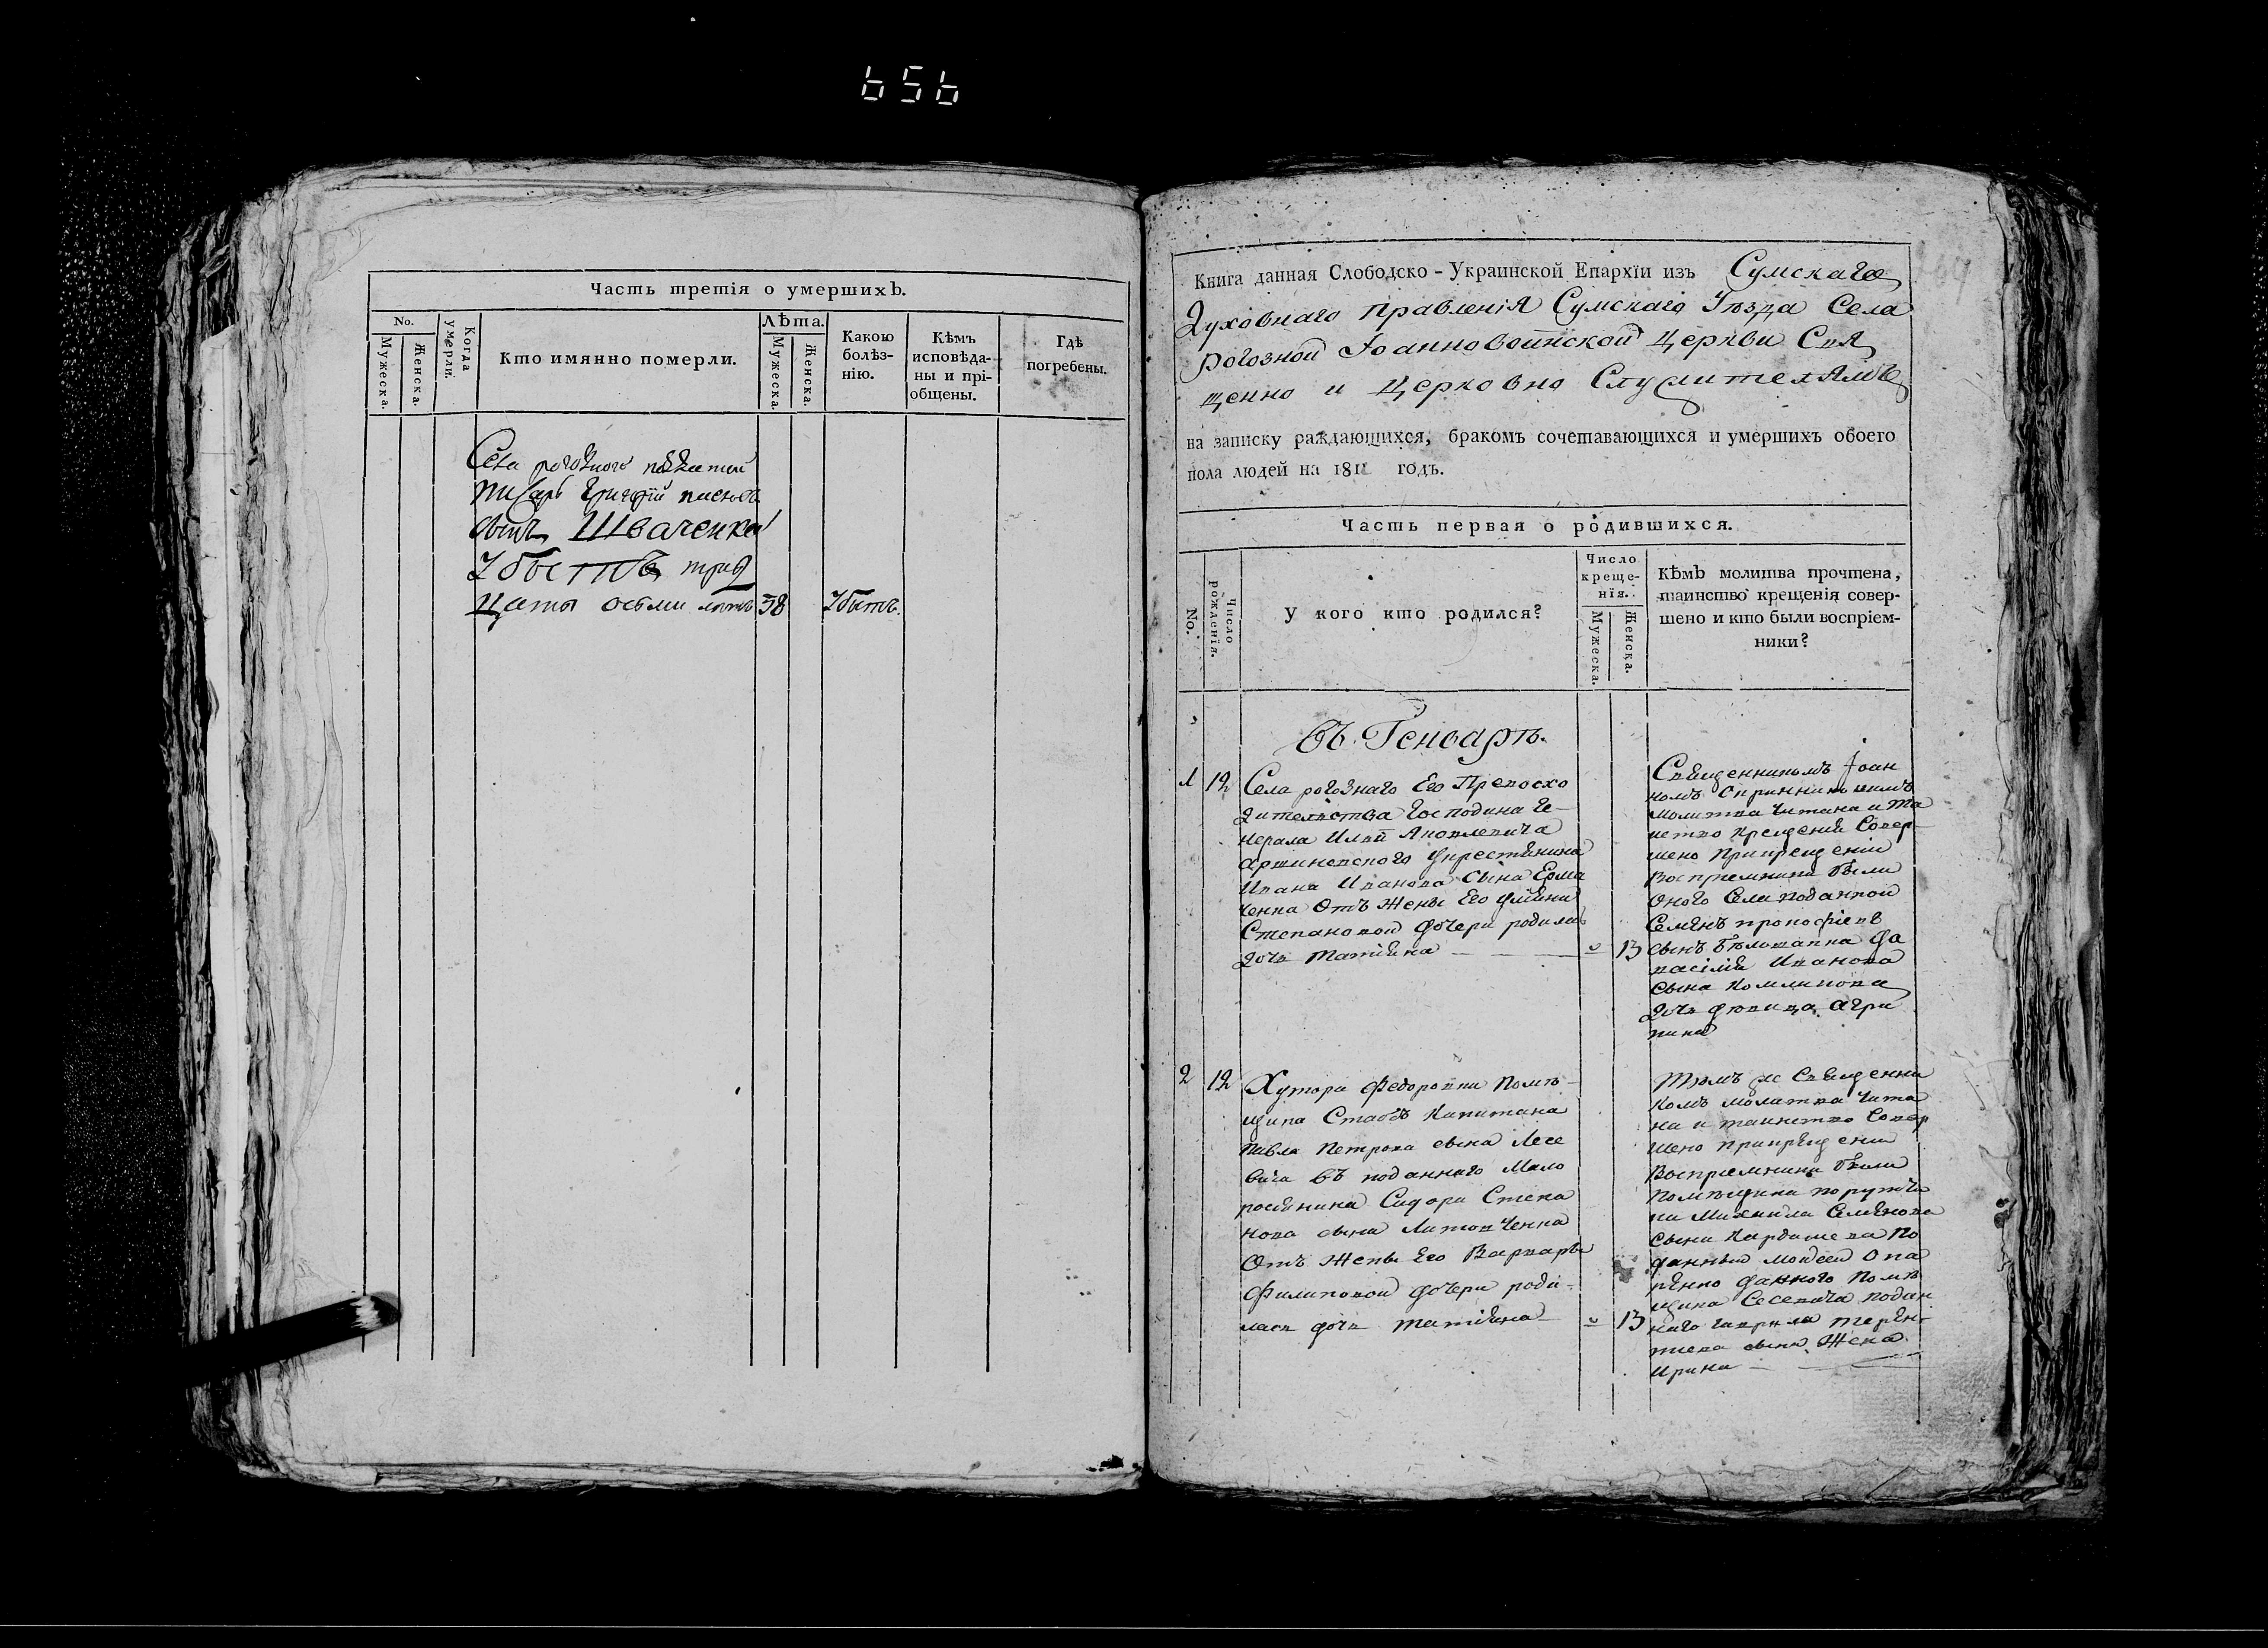 656
Часть третія о умершихъ.
No.
Мужеска.
Женска.
Когда умерли.
Кто имянно померли.
Лѣта.
Мужеска.
Женска.
Какою болѣз-
нію.
Кѣмъ исповѣда-
ны и прі-
общены.
Гдѣ погребены.
Села
писарь Григорій
сынъ Шваченко
Убыстъ трид
цаты осьми лѣтъ 38 Убитъ.
Книга данная Слободско-Украинской Епархїи изъ Сумскаго
Духовнаго правленія Сумскаго Уѣзда Села
рогозной Іоанновоинской Церкви Свя
щенно и Церковно Служителямъ
на записку раждающихся, бракомъ сочетавающихся и умершихъ обоего
пола людей на 1811 годъ.
Часть первая о родившихся.
No.
Число рожденія.
У кого кто родился?
Число креще-
нія.
Мужеска.
Женска.
Кѣмъ молитва прочтена,
таинство крещенія совер-
шено и кто были воспріем-
ники?
въ Генварѣ.
1 12 Села рогознаго Его Превосхо
дителства Господина Ге-
нерала Иліи Яковлевича
крестянина
Ивана Иванова Сына Ерма
ченка Отъ Жены Его
Степановой дочери родилас
дочь Татіяна 13
Священникомъ Іоан
номъ
молитва Читана и та
инство крещения Совер
шено При крещении
Восприемники были
Оного Села поданной
Семенъ
сынъ да
василия Иванова
Сына
дочь девица Агри
пина
2 12 Хутора Федоровки Помѣ-
щика Стабъ Капитана
Павла Петрова сына Лесе
вича въ поданнаго Мало
росиянина Сидора Степа
нова сына Литовченка
Отъ Жены Его Варвары
Филиповой дочери роди-
лась дочь Татіяна 13
Тѣмъ же Священни
комъ молитва Чита
на и таинство Совер
шено при крещении
Восприемники были
Помѣщика поручи
ка Михаила Семенова
сына По
данный Моисей
данного Помѣ
щика Лесевича подан
наго Гаврила Терен-
тиева сына Жена
Ирина